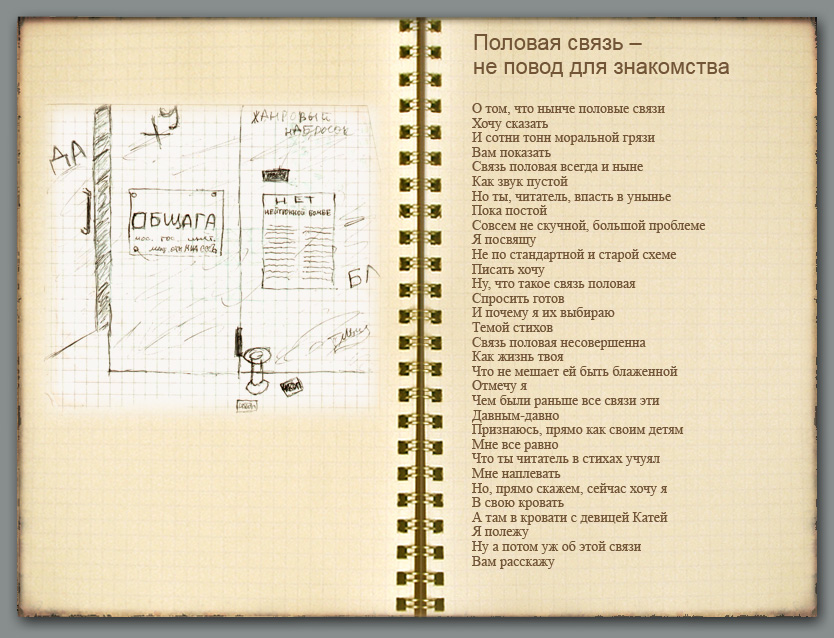 ЖАНРОВЫЙ
НАБРОСОК
ДА
ОБЩАГА
НЕТ
НЕЙТРОННОЙ БОМБЕ
БЛ
Половая связь –
не повод для знакомства
О том, что нынче половые связи
Хочу сказать
И сотни тонн моральной грязи
Вам показать
Связь половая всегда и ныне
Как звук пустой
Но ты, читатель, впасть в унынье
Пока постой
Совсем не скучной, большой проблеме
Я посвящу
Не по стандартной и старой схеме
Писать хочу
Ну, что такое связь половая
Спросить готов
И почему я их выбираю
Темой стихов
Связь половая несовершенна
Как жизнь твоя
Что не мешает ей быть блаженной
Отмечу я
Чем были раньше все связи эти
Давным-давно
Признаюсь, прямо как своим детям
Мне все равно
Что ты читатель в стихах учуял
Мне наплевать
Но, прямо скажем, сейчас хочу я
В свою кровать
А там в кровати с девицей Катей
Я полежу
Ну а потом уж об этой связи
Вам расскажу